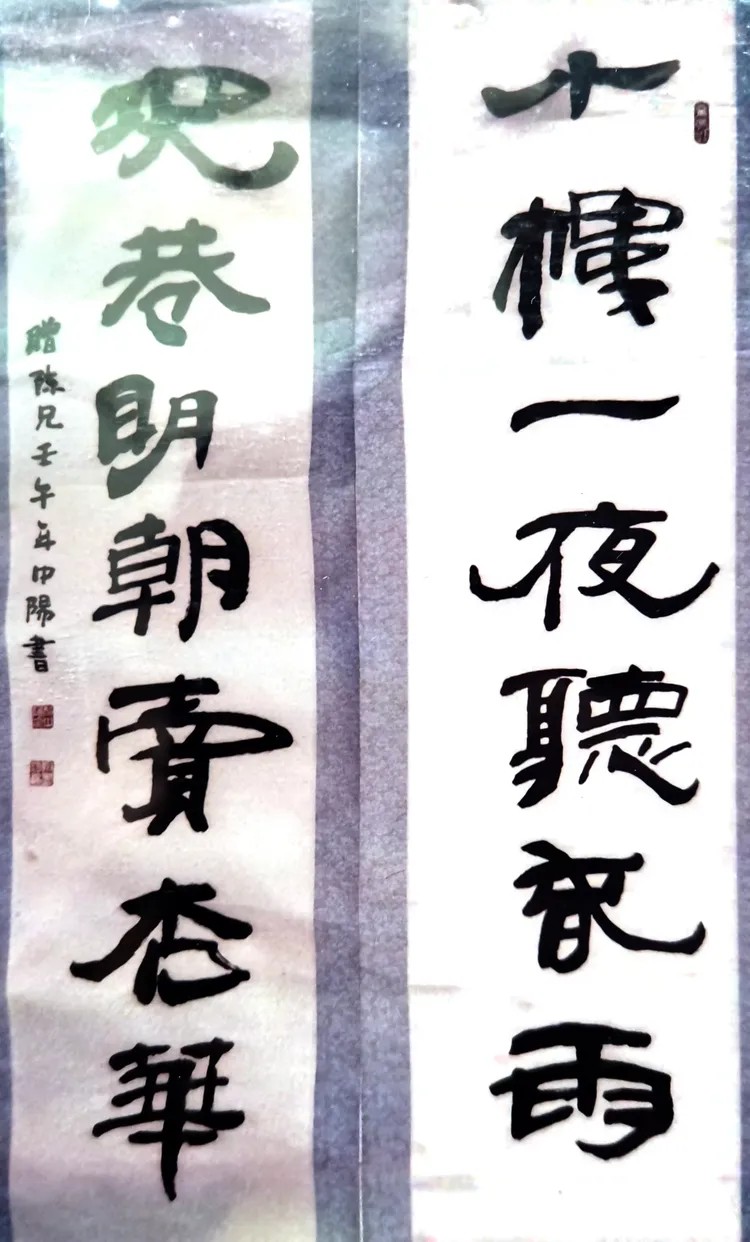 小樓一夜聽春雨
深巷明朝賣杏華
贈陳兄壬午年中陽書